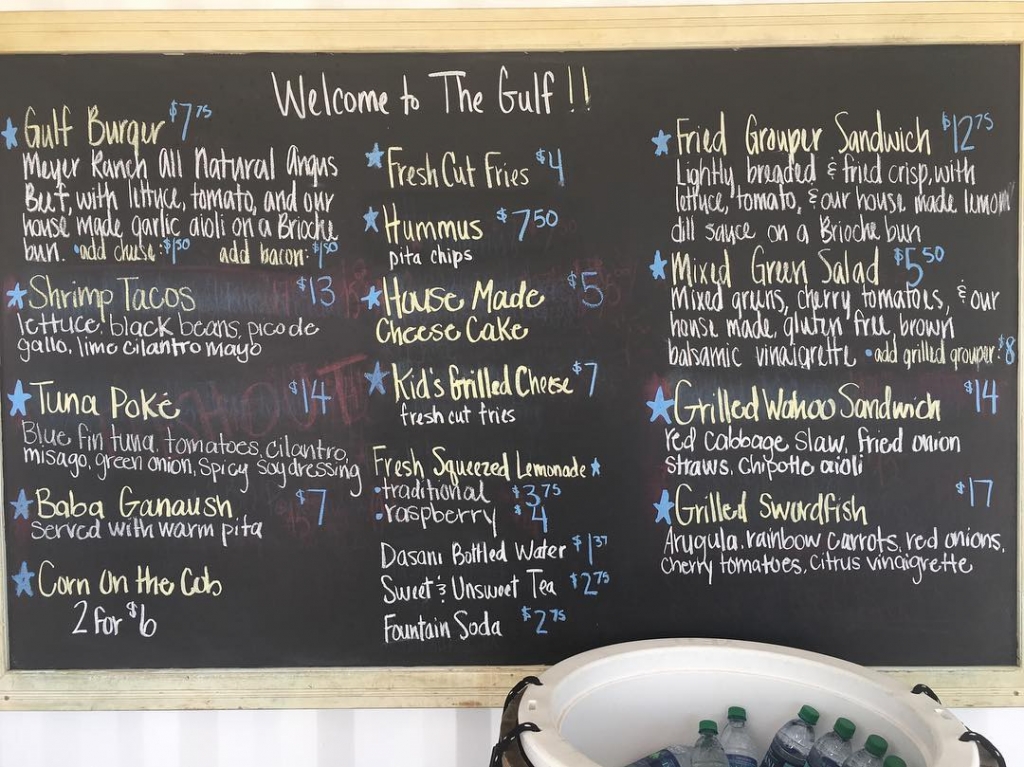 Welcome to The Gulf!!
Gulf Burger $7.75
Meyer Ranch All Natural Angus
Beef, with lettuce, tomato, and our
house made garlic aioli on a Brioche
bun. •add cheese: $1.50 add bacon: $1.50
Shrimp Tacos $13
lettuce, black beans, pico de
gallo, lime cilantro mayo
Tuna Poké $14
Blue fin tuna, tomatoes, cilantro,
misago, green onion, spicy soy dressing
Baba Ganaush $7
served with warm pita
Corn On the Cob
2 for $6
Fresh Cut Fries $4
Hummus $7.50
pita chips
House Made $5
Cheese Cake
Kid's Grilled Cheese $7
fresh cut fries
Fresh Squeezed Lemonade
•traditional $3.75
•raspberry $4
Dasani Bottled Water $1.37
Sweet & Unsweet Tea $2.75
Fountain Soda $2.75
Fried Grouper Sandwich $12.75
Lightly breaded & fried crisp, with
lettuce, tomato, & our house made lemon
dill sauce on a Brioche bun
Mixed Green Salad $5.50
Mixed greens, cherry tomatoes, & our
house made, gluten free, brown
balsamic vinaigrette •add grilled grouper: $8
Grilled Wahoo Sandwich $14
red cabbage slaw, fried onion
straws, chipotle aioli
Grilled Swordfish $17
Arugula, rainbow carrots, red onions,
cherry tomatoes, citrus vinaigrette